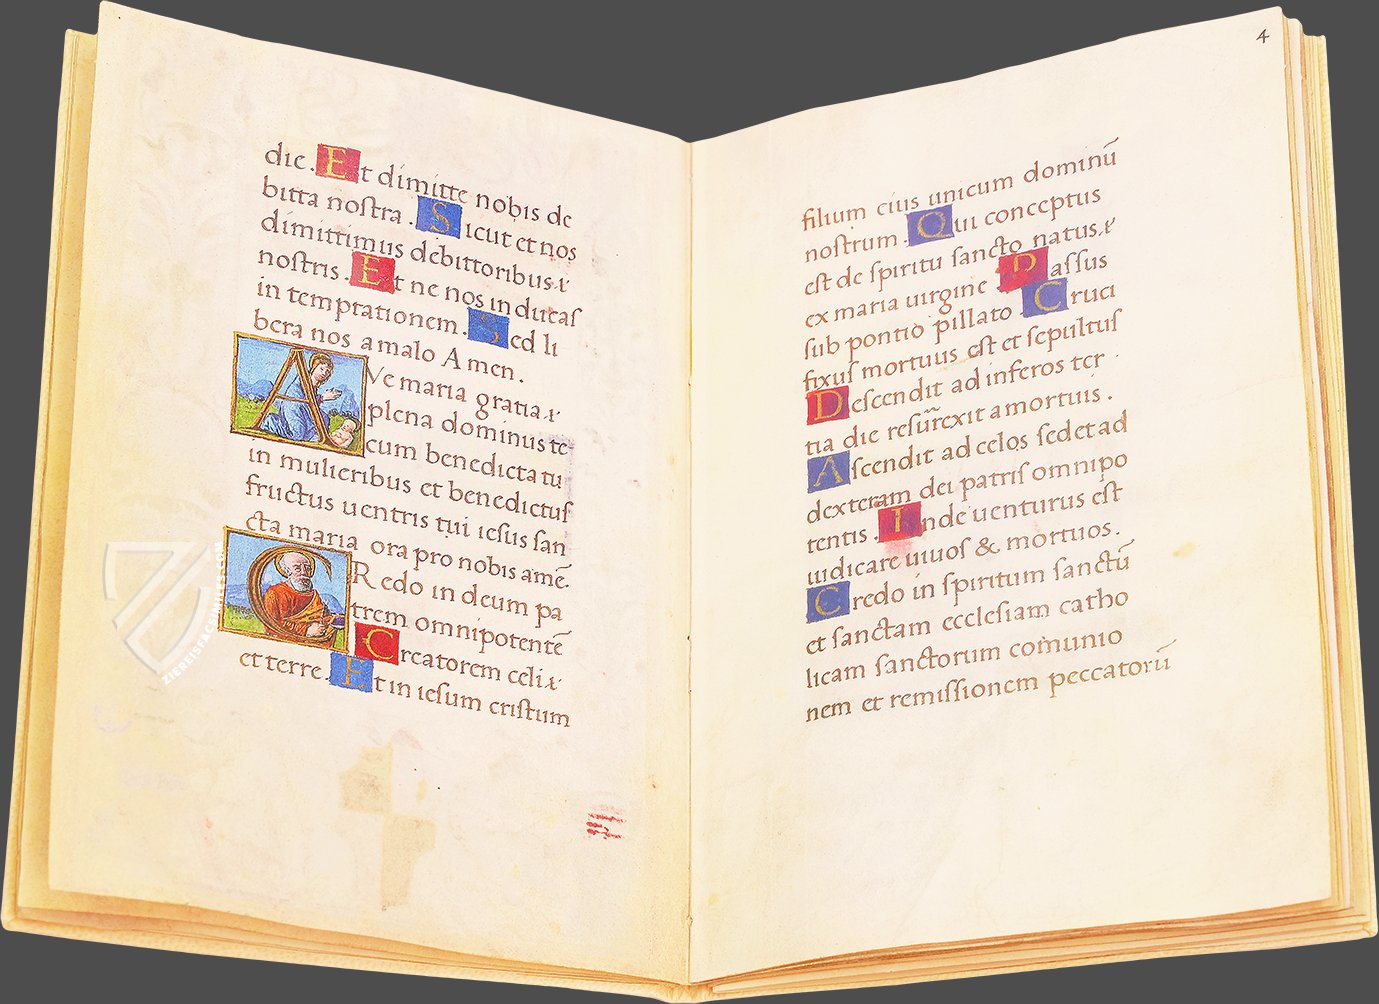 die. Et dimitte nobis de
bitta nostra. Sicut et nos
dimittimus debittoribus &
nostris. Et ne nos inducas
in temptrationem. Sed li
bera nos amalo Amen.
AVe maria gratia &
plena dominus te
cum benedicta tu
in mulieribus et benedictus
fructus uentris tui iesus san
cta maria ora pro nobis amē.
CRedo in deum pa
trem omnipotentē
Creatorem celi &
et terre. Et in iesum cristum
4
filium eius unicum dominū
nostrum. Qui conceptus
est de spiritu sancto natus &
ex maria uirgine. Passus
sub pontio pillato. Cruci
fixus mortuus est et sepultus
Descendit ad inferos ter
tia die resurexit amortuis.
Ascendit ad celos sedet ad
dexteram dei patris omnipo
tentis. Inde uenturus est
iudicare uiuos & mortuos.
Credo in spiritum sanctū
et sanctam ecclesiam catho
licam sanctorum comunio
nem et remissionem peccatorū
ZIEREISFACSIMILES.COM